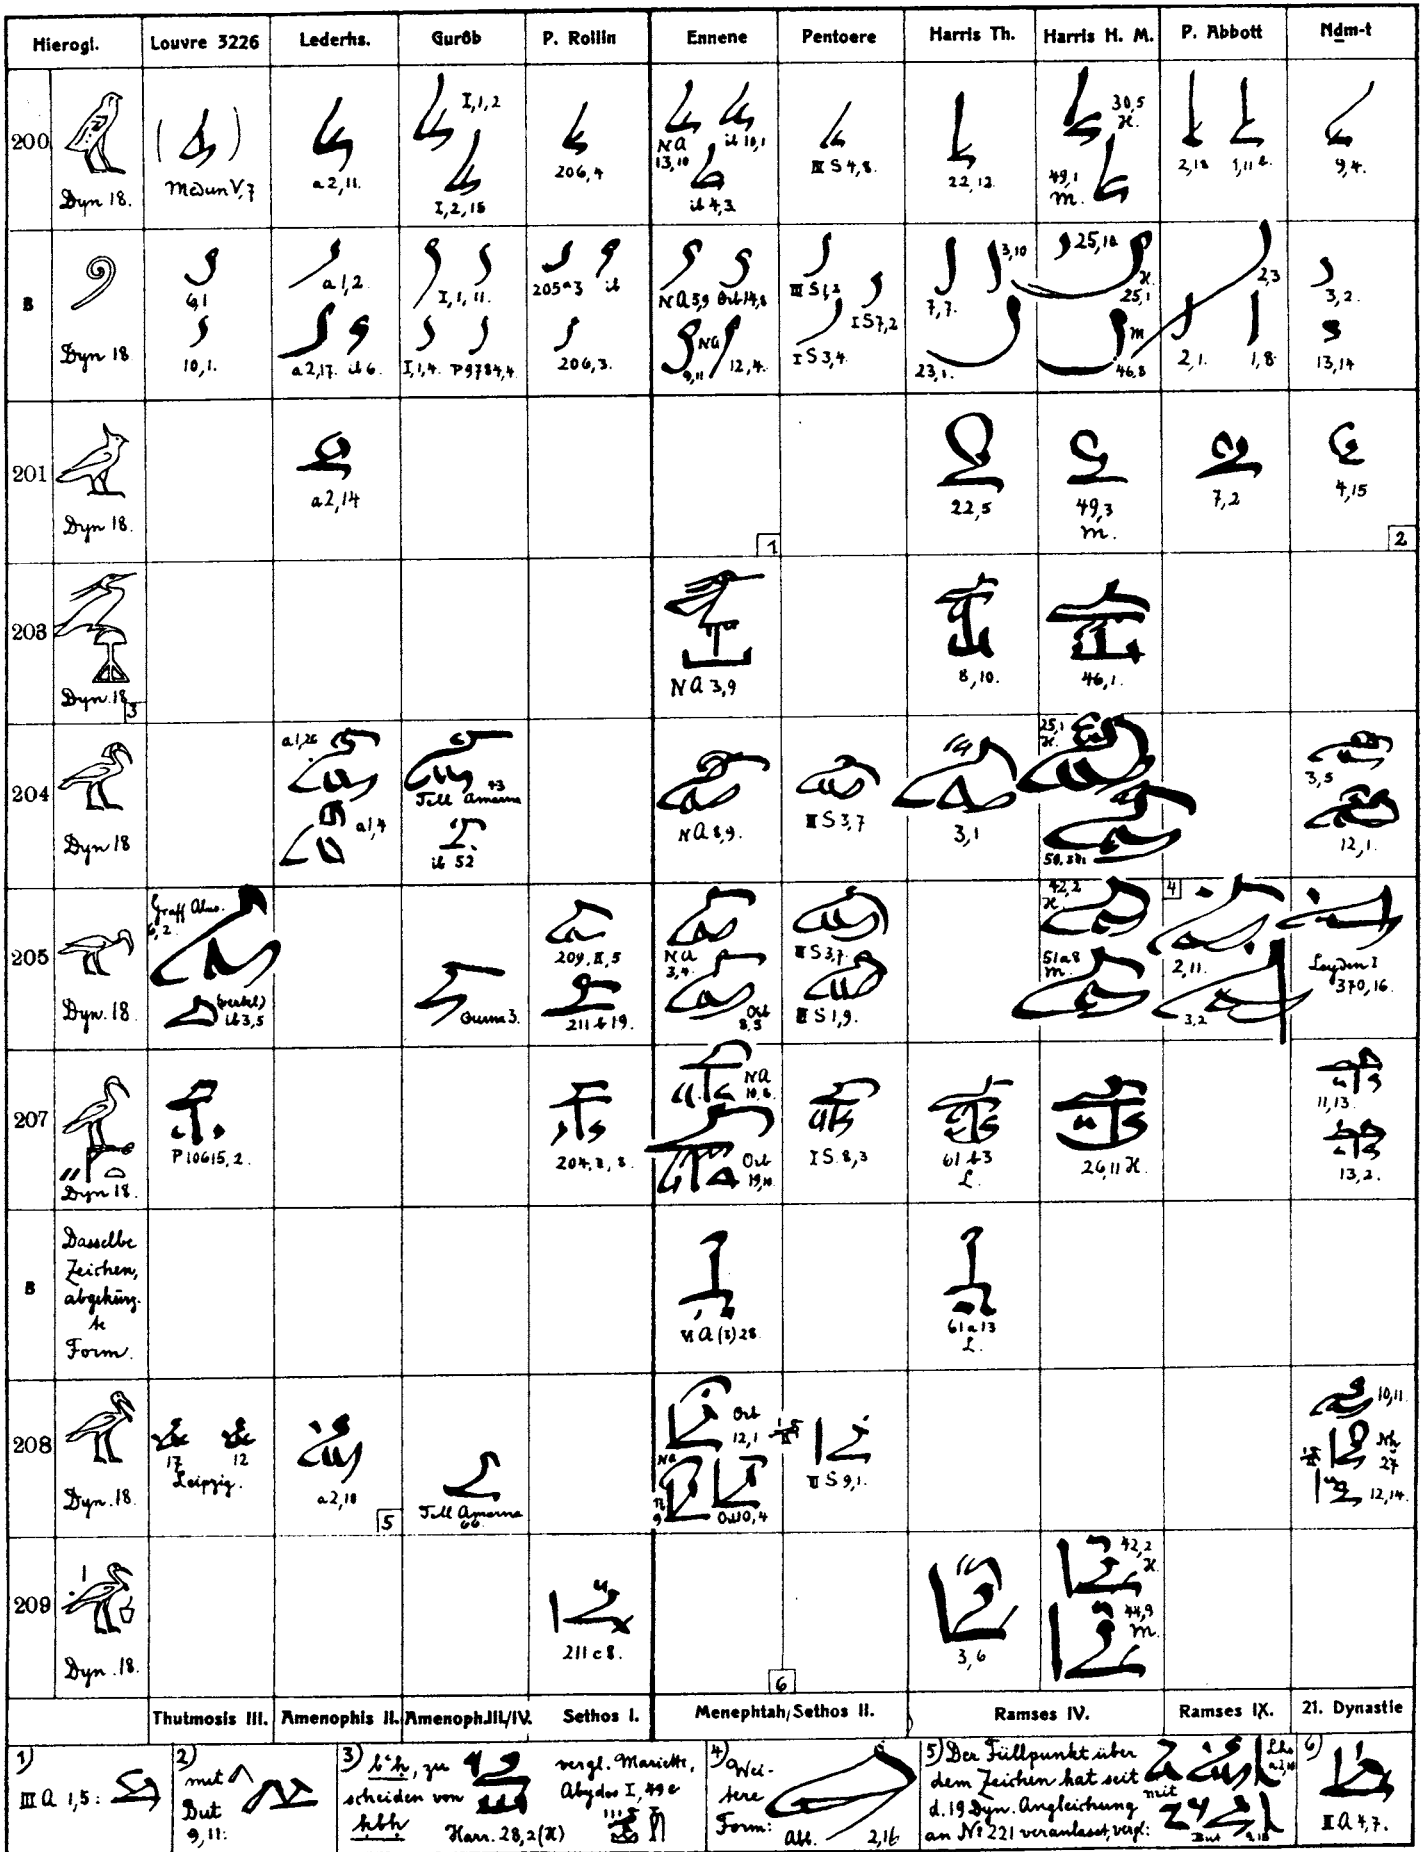 Hierogl. Louvre 3226 Lederhs. Gurôb P. Rollin Ennene Pentoere Harris Th. Harris H. M. P. Abbott Nḏm-t
200
Dyn 18.
Mєdum V, 7
a 2, 11.
I, 1, 2
I, 2, 15
206, 4
NA 13, 10
ib 10, 1
ib 4, 3
III S 4, 8.
22, 12.
30, 5 H.
49, 1 M.
2, 18
9, 4.
B
Dyn 18
6, 1
10, 1.
a 1, 2.
a 2, 17. ib 6.
I, 1, 11.
I, 1, 4. P 9784, 4.
205 a 3 ib
206, 3.
NA 5, 9 Orb 14, 8
NA 9, 11 12, 4.
III S 1, 2
I S 7, 2
I S 3, 4.
3, 10
7, 7.
23, 1.
25, 10
H. 25, 1
M 46, 8
2, 3
2, 1. 1, 8.
3, 2.
13, 14
201
Dyn 18.
a 2, 14
1
22, 5
49, 3 M.
7, 2
4, 15
2
203
Dyn. 18.
3
NA 3, 9
8, 10.
46, 1.
204
Dyn 18
a 1, 26
a 1, 4
Tell Amarna 43
ib 52
NA 8, 9.
III S 3, 7
3, 1
25, 1 H.
3, 5
12, 1.
205
Dyn. 18.
6, 2.
ib 3, 5
Gurna 3.
209, II, 5
211 b 19.
NA 3, 4.
Orb 8, 5
III S 3, 7.
III S 1, 9.
42, 2 H.
51 a 8 M.
4
2, 11.
3, 2
Leyden I 370, 16.
207
Dyn 18.
P 10615, 2.
204, 2, 8.
NA 10, 8.
Orb 19, 10.
I S. 8, 3
61 b 3 L.
26, 11 H.
11, 13.
13, 2.
B
Dasselbe
Zeichen,
abgekürz-
te
Form.
61 a 13 L.
208
Dyn. 18.
17 12
Leipzig.
a 2, 18
5
Tell Amarna 66.
Orb 12, 1
Orb 10, 4
III S 9, 1.
10, 11.
27
12, 14.
209
Dyn. 18.
211 c 8.
6
3, 6
42, 2 H.
44, 9 M.
Thutmosis III. Amenophis II. Amenoph.III/IV. Sethos I. Menephtah/Sethos II. Ramses IV. Ramses IX. 21. Dynastie
1) III A 1, 5:
2) mit
But
9, 11:
3) bꜥḥ, zu
scheiden von
ḥbḥ
Harr. 28, 2 (H)
vergl. Mariette,
Abydos I, 49 e
4) Wei-
tere
Form:
Abb. 2, 16
5) Der Füllpunkt über
dem Zeichen hat seit
d. 19 Dyn. Angleichung mit
an Nº 221 veranlasst, vergl:
6)
II A 4, 7.